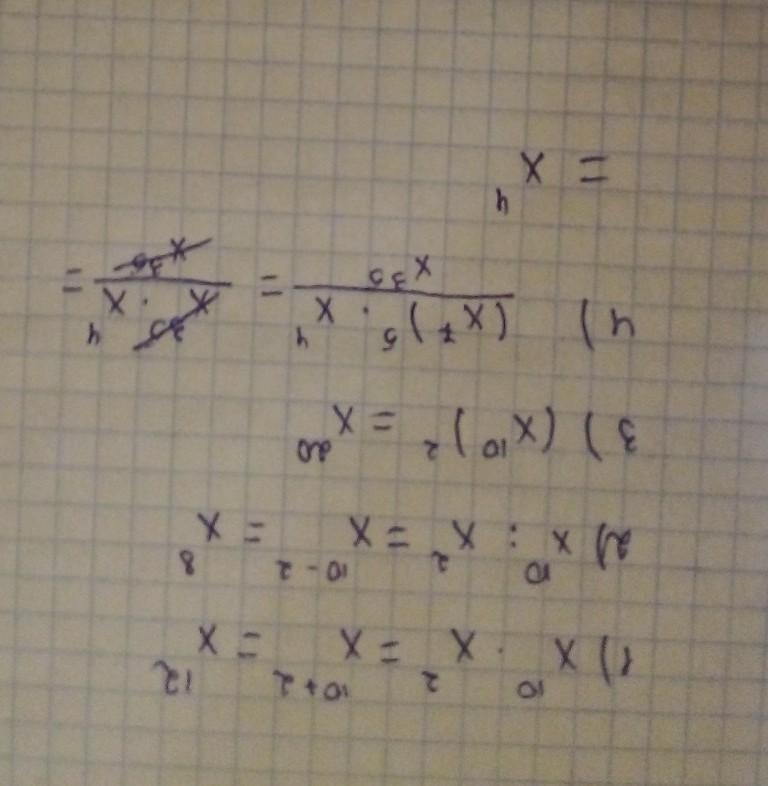 1) x^10 · x^2 = x^10+2 = x^12
2) x^10 : x^2 = x^10-2 = x^8
3) (x^10)^2 = x^20
4) (x^7)^5 · x^4 / x^35 = x^35 · x^4 / x^35 =
= x^4